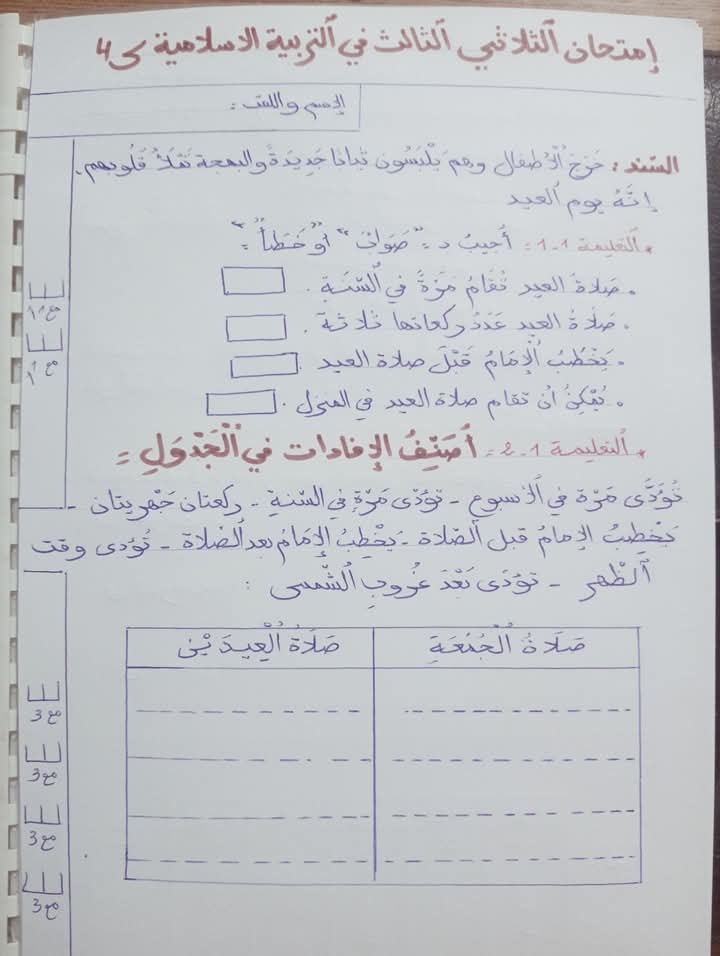 إمتحان الثلاثي الثالث في التربية الاسلامية س4
الإسم واللقب :
السّند : خَرَجَ الْأطفال وهم يَلْبَسُون ثيابا جَدِيدَةً والبهجة تَمْلَأُ قُلُوبهم.
إنَّهُ يوم العيد
* التعليمة 1-1 : أجيبُ بـ "صَوَابْ" أوْ "خَطَأْ" :
. صلاة العيد تُقَامُ مَرّةً في السّنَةِ .
. صلاةُ العيد عَدَدُ ركعاتها ثلاثة .
. يَخْطُبُ الْإمَامُ قَبْلَ صلاة العيد .
. يُمْكِنُ أن تقام صلاة العيد في المنزل .
ع1 1
ع1
* التعليمة 1-2 : أُصَنِّفُ الإفادات في الْجَدْوَلِ :
تُؤَدَّى مَرّة في الأسبوع - تؤدّى مَرّةً في السّنةِ - ركعتان جَهْريتان -
يَخْطبُ الإمَامُ قبل الصّلاة - يَخْطِبُ الإمَامُ بعد الصّلاة - تُؤدى وقت
الظّهر - تؤدّى بَعْدَ غُروبِ الشّمسِ :
صَلَاةُ الْجُمُعَةِ | صَلَاةُ الْعِيدَيْنِ
ع3
ع3
ع3
ع3